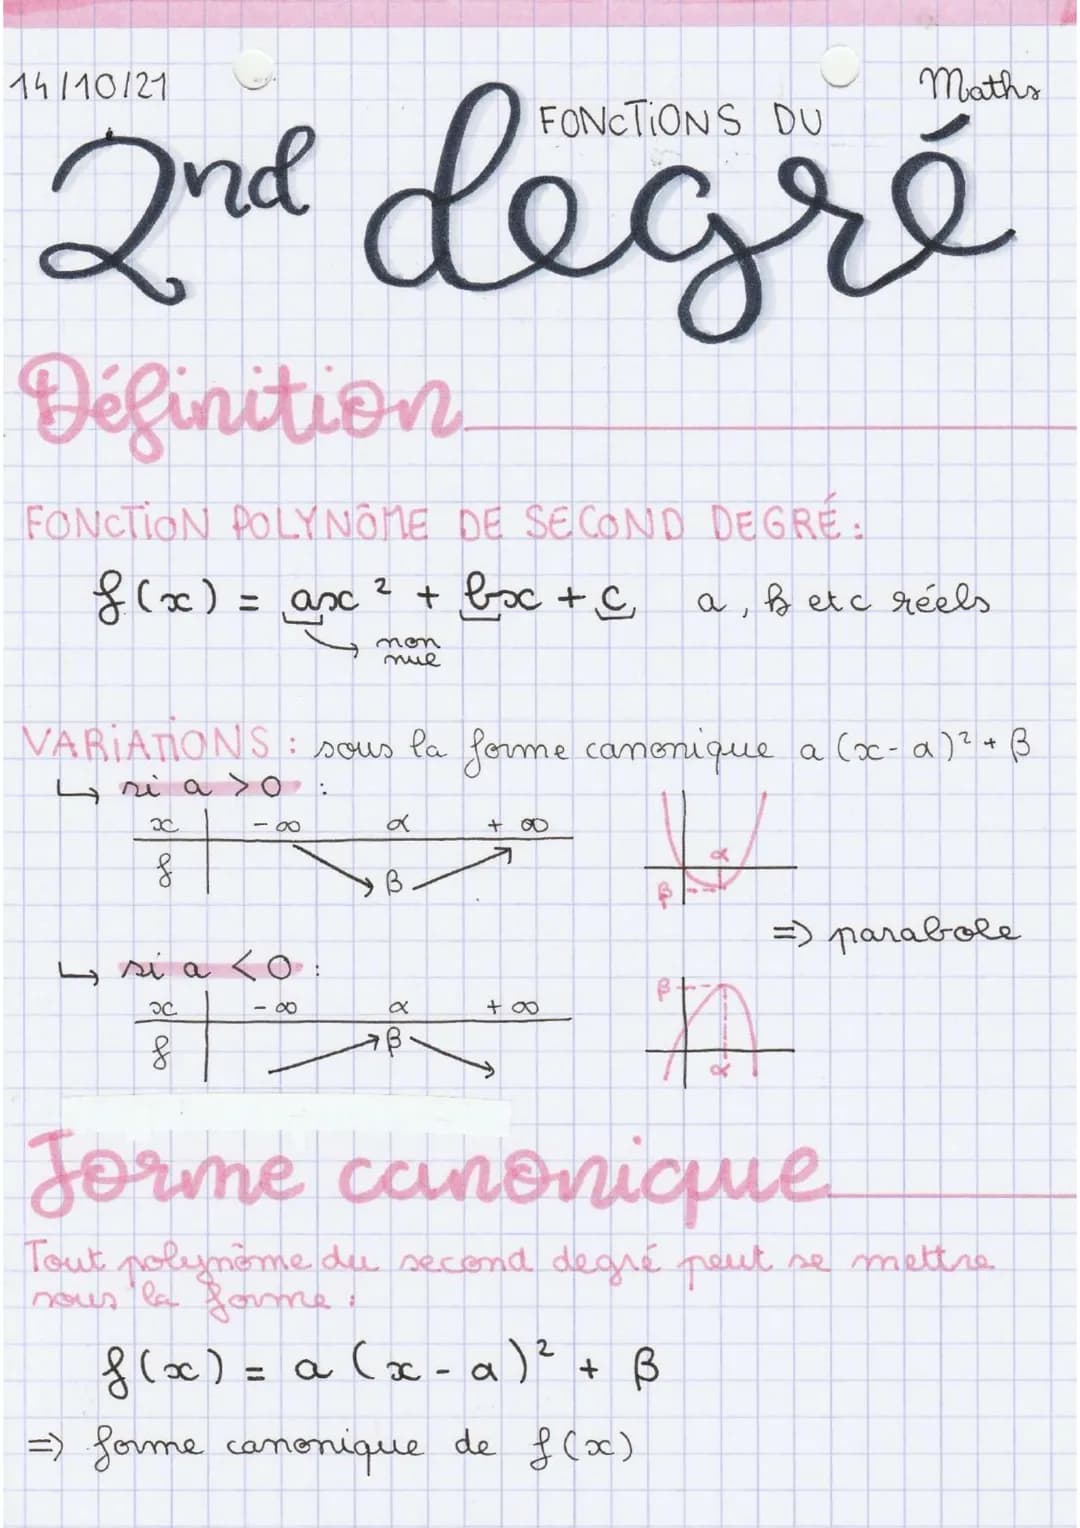 14/10/21
Maths
FONCTIONS DU
2nd degré
Définition
FONCTION POLYNÔME DE SECOND DEGRÉ :
f(x) = ax² + bx + c a, b et c réels
non
nul
VARIATIONS : sous la forme canonique a (x - α)² + β
↳ si a > 0 :
x -∞ α +∞
f β
α
β
=> parabole
↳ si a < 0 :
x -∞ α +∞
f β
β
α
Forme canonique
Tout polynôme du second degré peut se mettre
sous la forme :
f(x) = a (x - α)² + β
=> forme canonique de f(x)